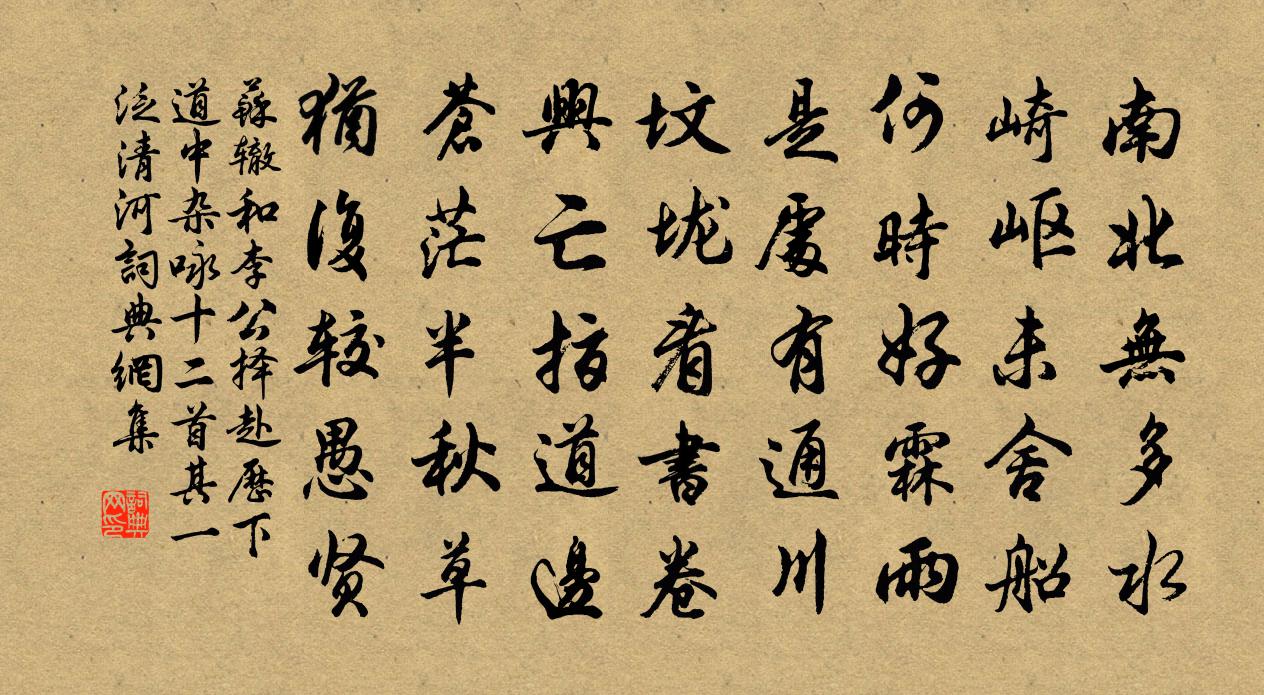 南北無多水
崎岖未舍船
何時好霖雨
是處有通川
坟垅看書卷
興亡指道邊
蒼茫半秋草
猶復较愚贤
蘇辙和李公择赴歷下
道中杂咏十二首其一
泛清河詞典網集
詞典网印